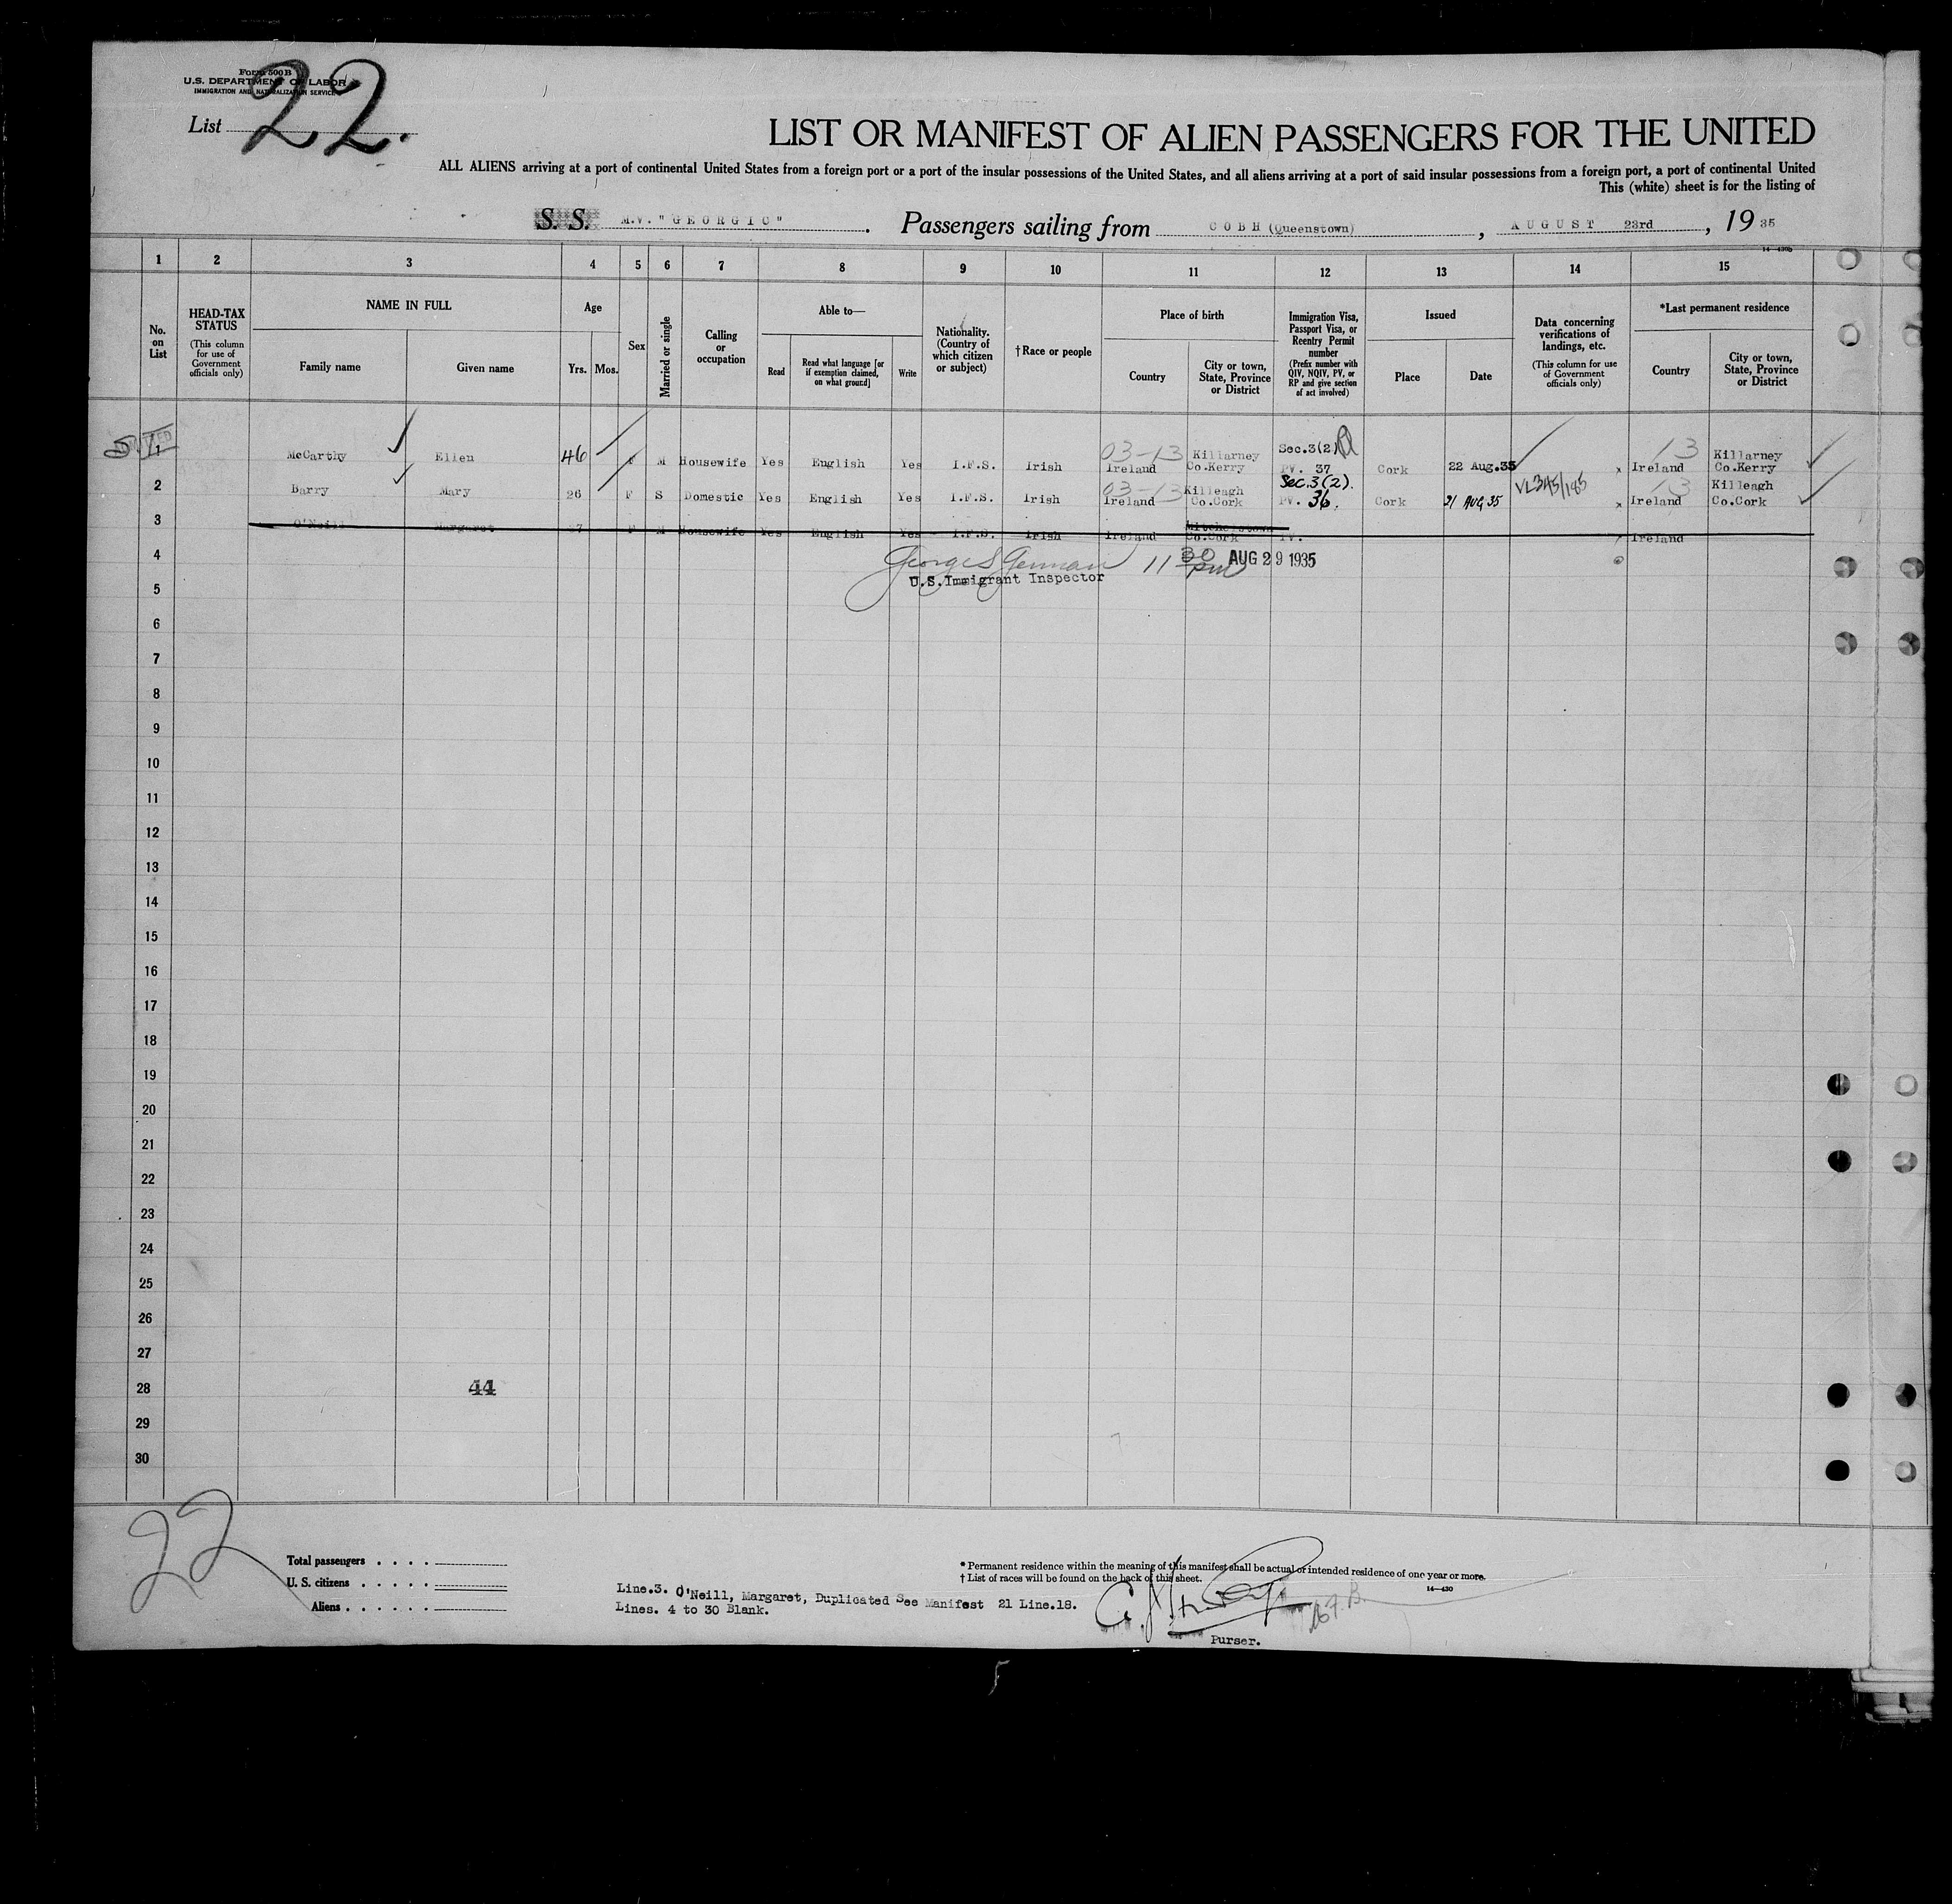 Form 500 B
U.S. DEPARTMENT OF LABOR
IMMIGRATION AND NATURALIZATION SERVICE
List 22.
LIST OR MANIFEST OF ALIEN PASSENGERS FOR THE UNITED
ALL ALIENS arriving at a port of continental United States from a foreign port or a port of the insular possessions of the United States, and all aliens arriving at a port of said insular possessions from a foreign port, a port of continental United
This (white) sheet is for the listing of
S. S. M.V. "GEORGIC". Passengers sailing from COBH (Queenstown), AUGUST 23rd, 1935
1 2 3 4 5 6 7 8 9 10 11 12 13 14 15
No. on List
HEAD-TAX STATUS
(This column for use of Government officials only)
NAME IN FULL
Family name
Given name
Age
Yrs. Mos.
Sex
Married or single
Calling or occupation
Able to—
Read
Read what language [or if exemption claimed, on what ground]
Write
Nationality. (Country of which citizen or subject)
†Race or people
Place of birth
Country
City or town, State, Province or District
Immigration Visa, Passport Visa, or Reentry Permit number
(Prefix number with QIV, NQIV, PV, or RP and give section of act involved)
Issued
Place
Date
Data concerning verifications of landings, etc.
(This column for use of Government officials only)
*Last permanent residence
Country
City or town, State, Province or District
1 McCarthy Ellen 46 F M Housewife Yes English Yes I.F.S. Irish 03-13 Ireland Killarney Co.Kerry Sec.3(2) PV. 37 Cork 22 Aug.35 13 x Ireland Killarney Co.Kerry
2 Barry Mary 26 F S Domestic Yes English Yes I.F.S. Irish 03-13 Ireland Killeagh Co.Cork Sec.3(2). PV. 36. Cork 21 AUG 35 VL345/185 13 x Ireland Killeagh Co.Cork
3 O'Neill Margaret F M Housewife Yes English Yes I.F.S. Irish Ireland Mitchelstown Co.Cork PV. Ireland
4 George S German 11 30 pm AUG 29 1935
U.S.Immigrant Inspector
5
6
7
8
9
10
11
12
13
14
15
16
17
18
19
20
21
22
23
24
25
26
27
28 44
29
30
22
Total passengers
U. S. citizens
Aliens
* Permanent residence within the meaning of this manifest shall be actual or intended residence of one year or more.
† List of races will be found on the back of this sheet.
14—430
Line.3. O'Neill, Margaret, Duplicated See Manifest 21 Line.18.
Lines. 4 to 30 Blank.
Purser.